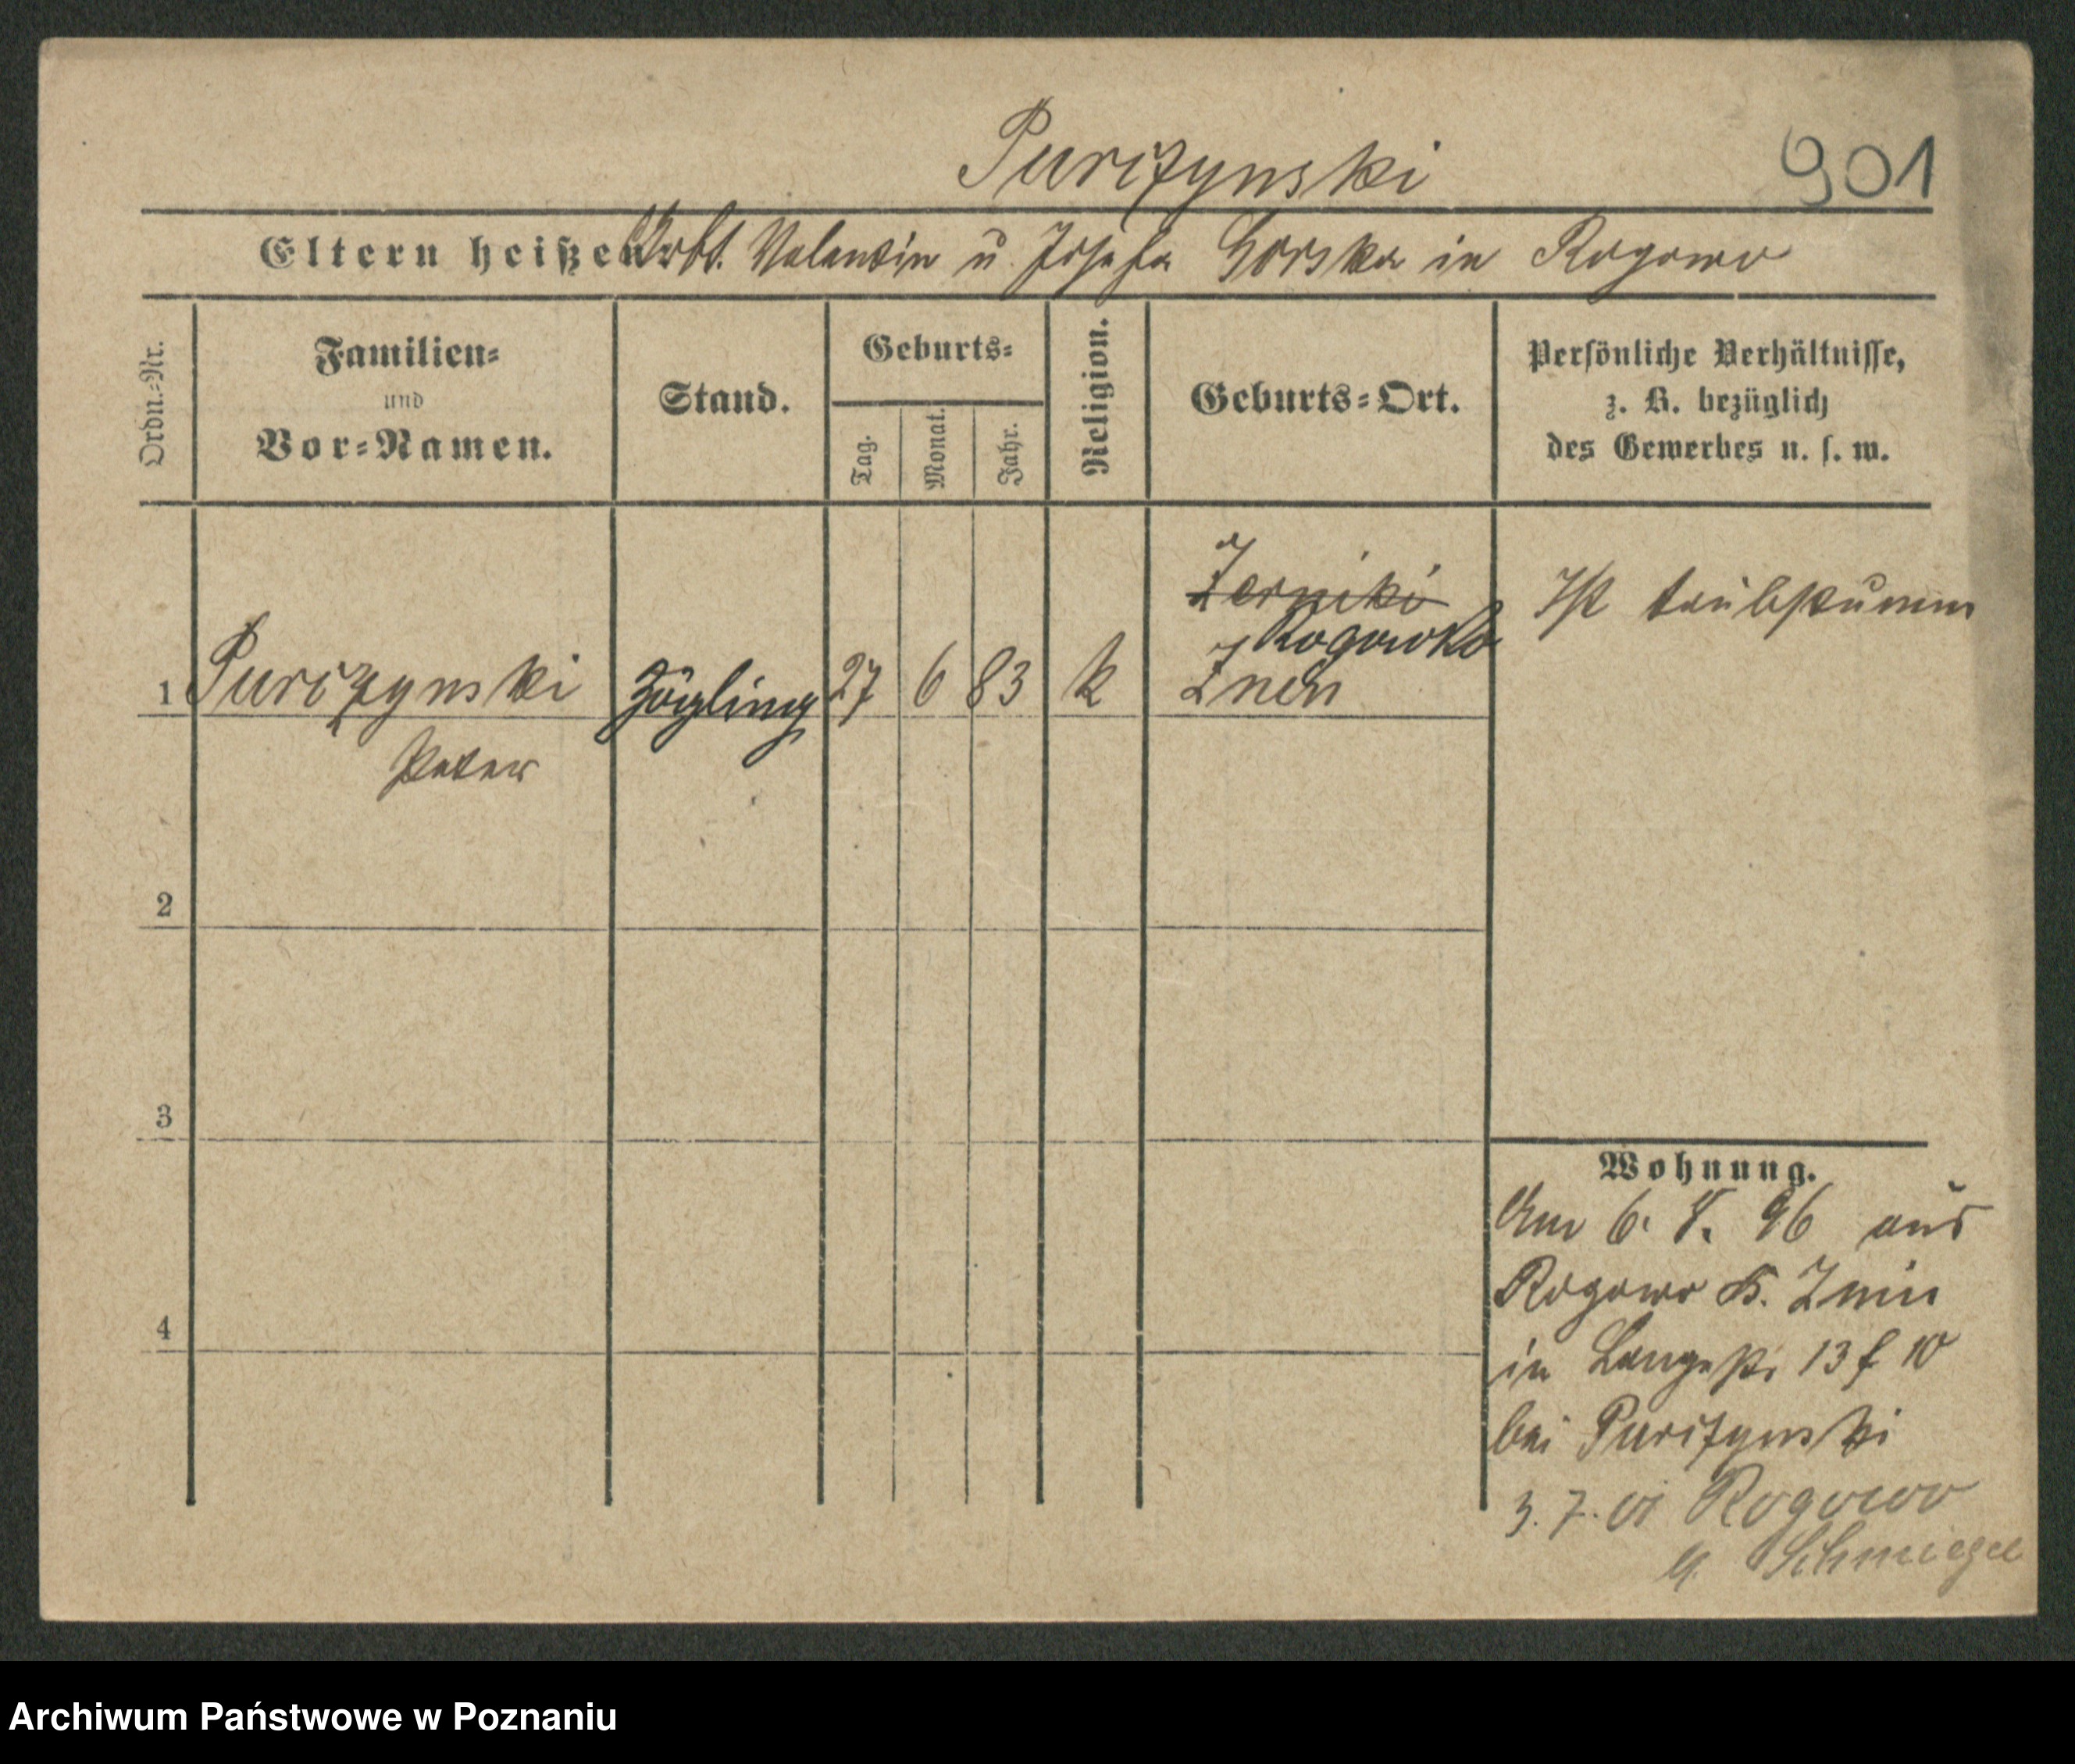 Purizynski 901
Eltern heißen: Arbt. Valentin u. Josefa Gorska in Rogowo
Ordn.=Nr.
Familien=
und
Vor=Namen.
Stand.
Geburts=
Tag.
Monat.
Jahr.
Religion.
Geburts=Ort.
Persönliche Verhältnisse,
z. B. bezüglich
des Gewerbes u. s. w.
Zerniki
Ist taubstumm
Rogowko
1 Purizynski Zögling 27 6 83 k Znin
Peter
2
3
4
Wohnung.
Am 6. 8. 96 aus
Rogowo K. Znin
in Langestr. 13 f 10
bei Purizynski
3. 7. 01 Rogowo
Schmiegel
Archiwum Państwowe w Poznaniu